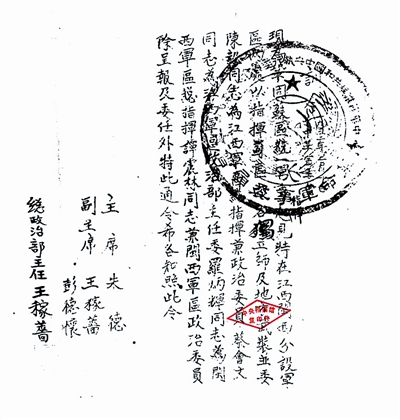 同蘇區統一軍事意見特在江西閩西分設軍
區以指揮軍區各獨立師及地方武裝並委
陳毅同志為江西軍區總指揮兼政治委員蔡會文
同志為江西軍區政治部主任委羅炳輝同志為閩
西軍區總指揮譚震林同志兼閩西軍區政治委員
除呈報及委任外特此通令希各知照此令
主席 朱德
副主席 王稼薔
彭德懷
總政治部主任 王稼薔